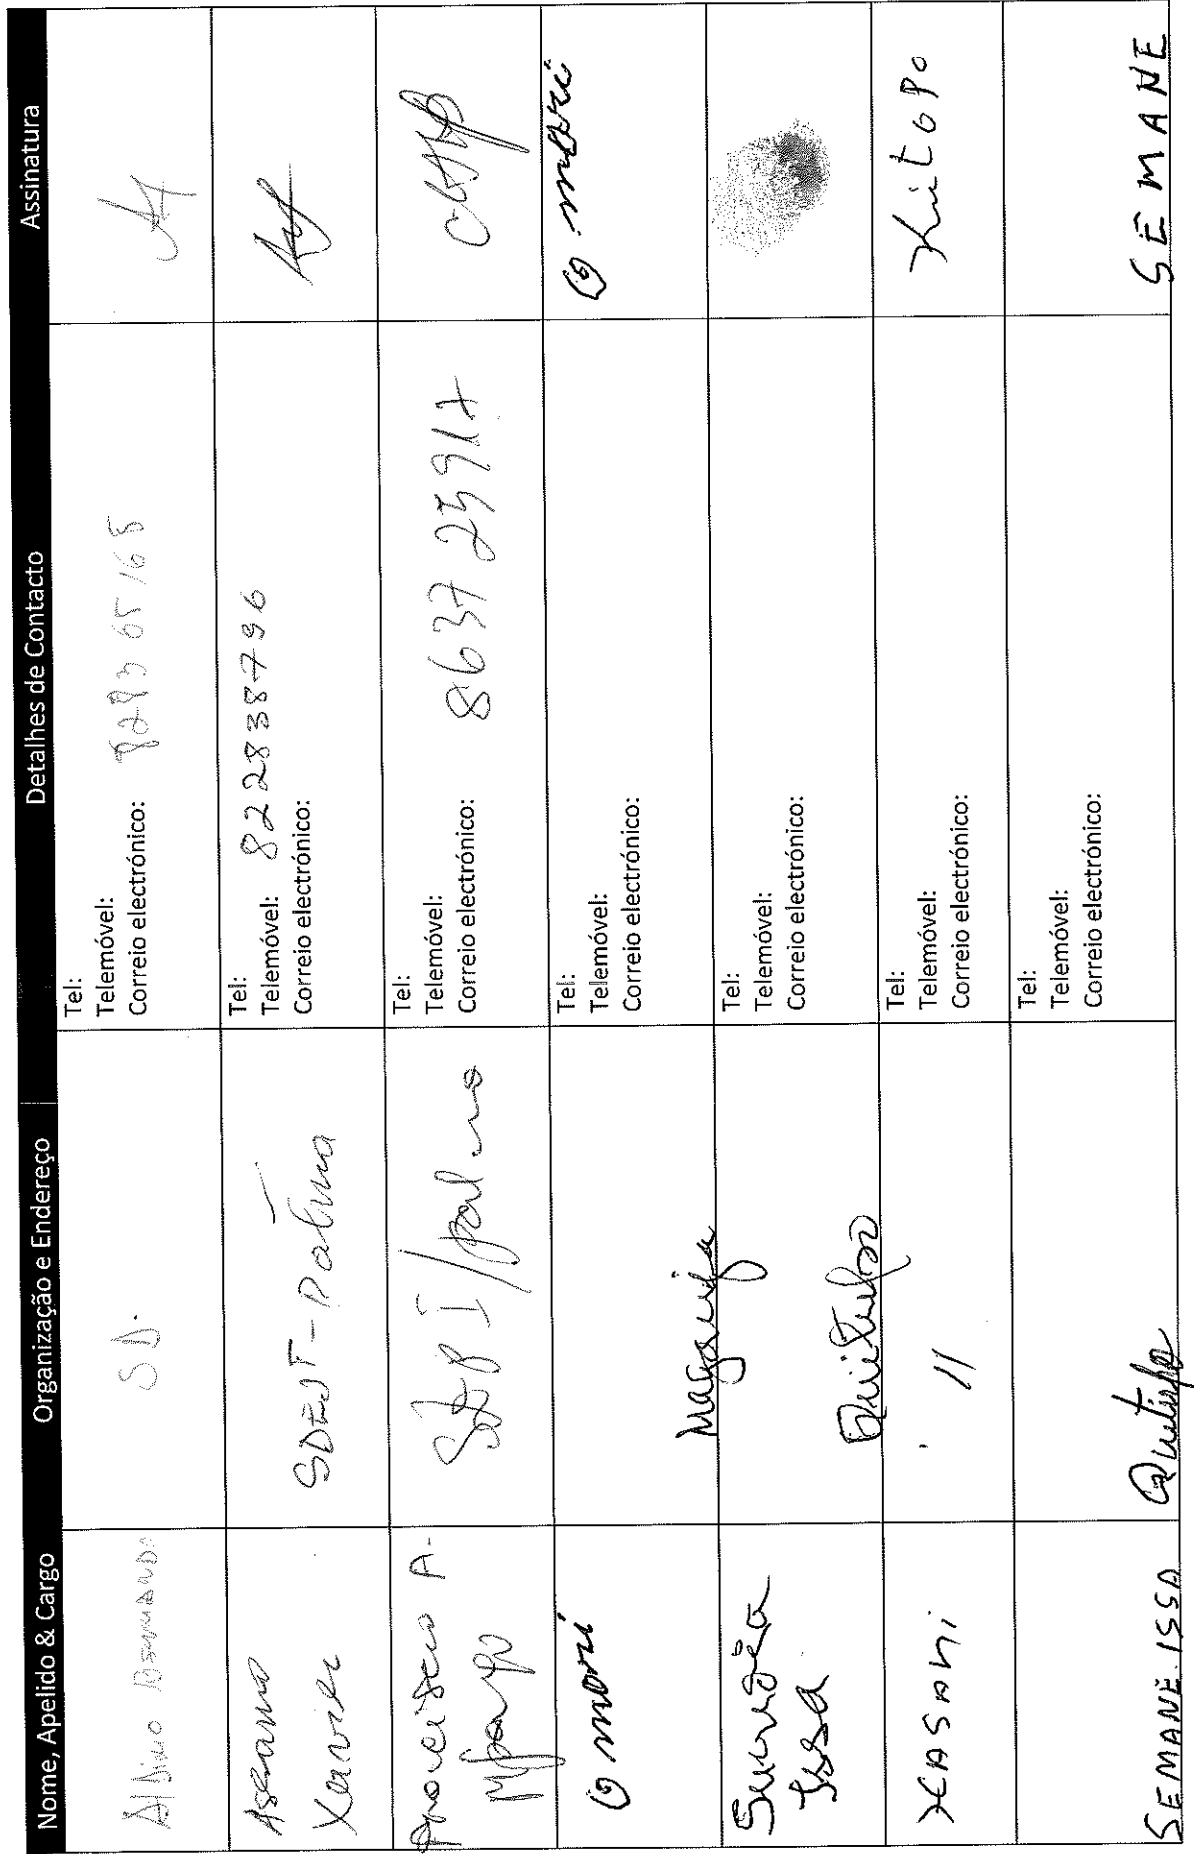 Nome, Apelido & Cargo Organização e Endereço Detalhes de Contacto Assinatura
Aldino
S.D.
Tel:
Telemóvel:
Correio electrónico: 829365165
Assano
Xavier
SDEJT-Palma
Tel:
Telemóvel: 822838796
Correio electrónico:
A.
SDPI/palma
Tel:
Telemóvel:
Correio electrónico: 863725917
Omori
Maganja
Tel:
Telemóvel:
Correio electrónico:
Omori
Issa
Tel:
Telemóvel:
Correio electrónico:
XASANI
"
Tel:
Telemóvel:
Correio electrónico:
SEMANE. ISSA
Tel:
Telemóvel:
Correio electrónico:
SEMANE